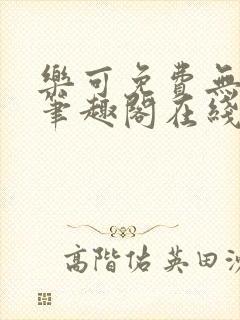 樂可免費無
筆趣閣在綫
高階佑英田